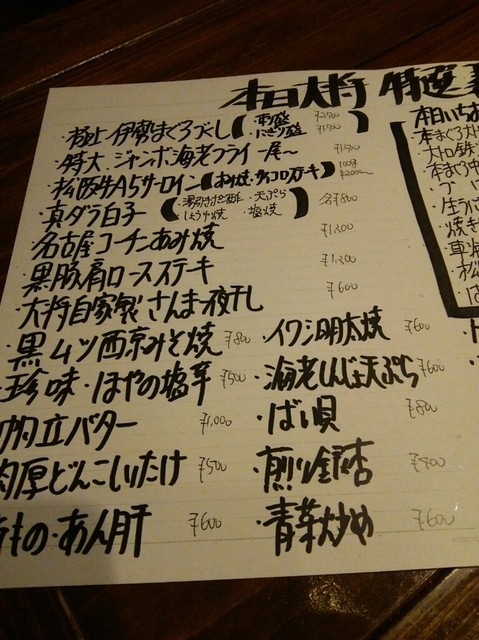 本日大将 特選
・極上 伊勢まぐろづくし
¥1,500
・特大 ジャンボ海老フライ一尾〜 ¥1,500
・松阪牛A5サーロイン
・真ダラ白子 湯引きポン酢 ・天ぷら しょうゆ焼 塩焼 各¥800
名古屋コーチンあみ焼 ¥1,200
・黒豚肩ロースステキ ¥1,200
・大将自家製 さんま一夜干し ¥600
・黒ムツ西京みそ焼 ¥800
・イワシ明太焼 ¥600
・珍味・ほやの塩辛 ¥500
・海老しんじょ天ぷら ¥600
帆立バター ¥1,000
・ばい貝 ¥800
肉厚どんこしいたけ ¥500
・煎り銀杏 ¥400
もの・あん肝 ¥600
・青菜炒め ¥600
本日いちお
本まぐろ
大トロ鉄
本まぐろ中
生う
焼き
車海
松
は